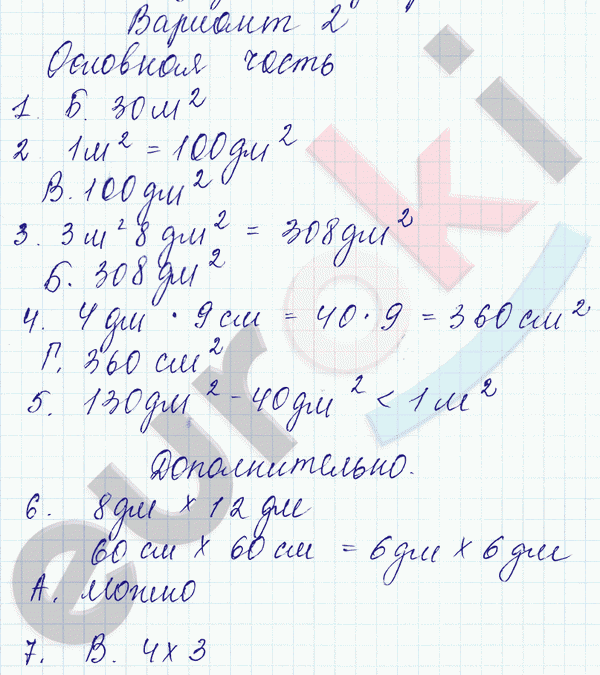 Вариант 2
Основная часть
1. Б. 30 м²
2 1 м² = 100 дм²
В. 100 дм²
3. 3 м² 8 дм² = 308 дм²
Б. 308 дм²
4. 4 дм · 9 см = 40 · 9 = 360 см²
Г. 360 см²
5. 130 дм² - 40 дм² < 1 м²
Дополнительно.
6. 8 дм × 12 дм
60 см × 60 см = 6 дм × 6 дм
А. можно
7. В. 4 × 3
euroki